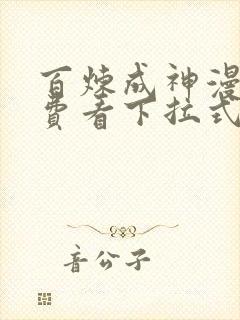 百炼成神漫
费看下拉式
音公子